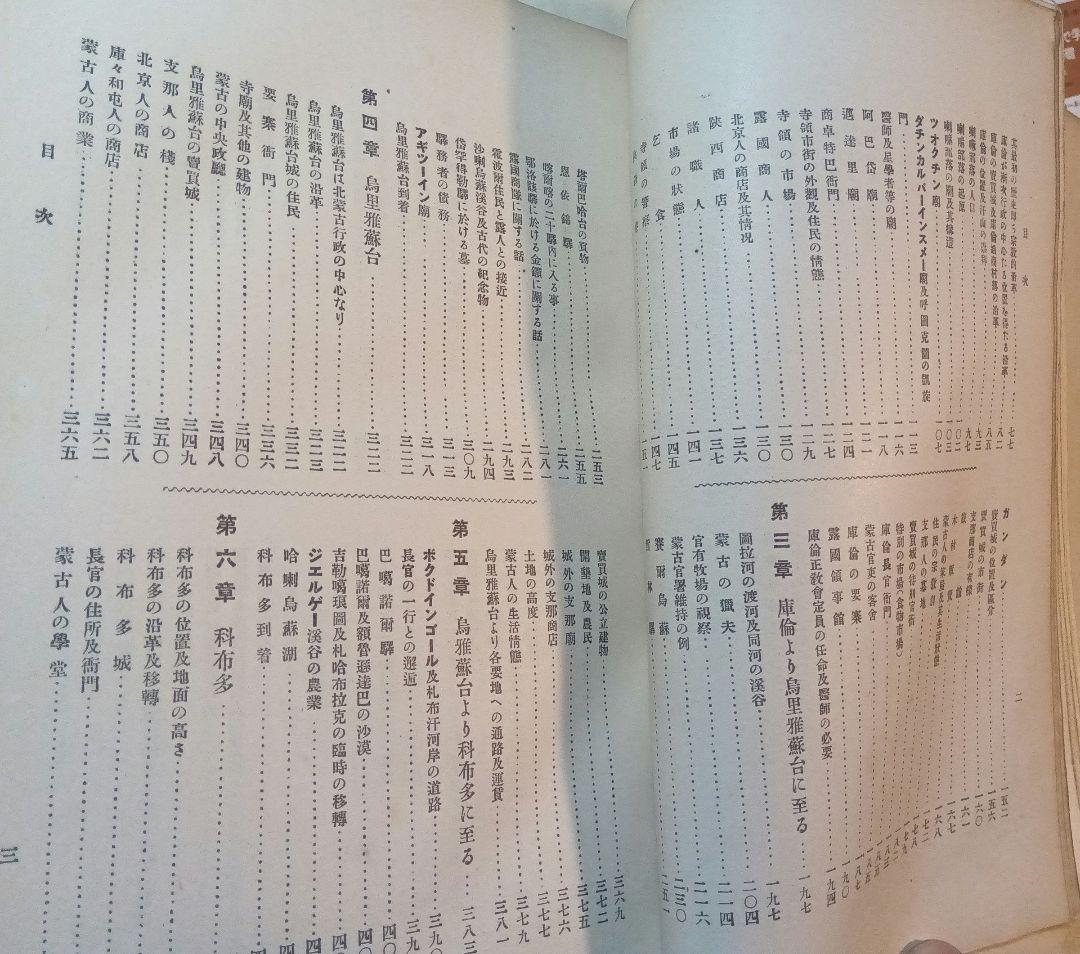 目次
其最初の
庫倫が漸次行政の中心たる位置を得たる沿革……八二
庫倫の賣買城及庫倫最殘村落の沿革……八五
喇嘛部落の人口……九三
喇嘛部落の起原……九七
喇嘛部落の廟及其構造……一〇三
ツオクチン廟……一〇七
ダチンカルバーインスメー廟及呼圖克圖の凱旋
門……一一三
醫師及星學者等の廟……一一六
阿巴岱廟……一一八
邁達里廟……一二四
商卓特巴衙門……一二七
寺領市街の外觀及住民の情態……一二九
寺領の市場……一三〇
露國商人……一三〇
北京人の商店及其情況……一三六
陝西商店……一三七
諸職人……一四一
市場の狀態……一四五
乞食……一四七
寺領の警察……一五一
ガンダン……一五二
賣買城の位置及區分……一五六
賣買城の市街……一六〇
支那商店の有樣……一六一
木材販賣……一六七
住民の宗敎……
支那人の墓地……
賣買城の待和官衙……
特別の市場(食物市場)……
庫倫長官衙門……
蒙古官吏の客舍……
庫倫の要寨……一八七
露國領事館……一九〇
庫倫正敎會定員の任命及醫師の必要……一九四
第三章 庫倫より烏里雅蘇台に至る……一九七
圖拉河の渡河及同河の溪谷……一九七
蒙古の獵夫……二〇四
官有牧場の視察……二一四
蒙古官署維持の例……二一六
賽爾烏蘇……二三〇
塔爾巴哈台の貢物……二五三
恩依錦驛……二五五
喀爾喀の二十驛內に入る事……二六一
鄂洛該驛に於ける金鑛に關する話……二八一
露國商隊に關する話……二八二
霍渡爾住民と露人との接近……二九三
沙喇烏蘇溪谷及古代の紀念物……二九四
岱罕得勒驛に於ける墓……三〇九
驛務者の債務……三一三
アギツーイン廟……三一八
烏里雅蘇台到着……三二二
第四章 烏里雅蘇台……三二二
烏里雅蘇台は北蒙古行政の中心なり……三二二
烏里雅蘇台の沿革……三二三
烏里雅蘇台城の住民……三三二
要寨衙門……三三六
寺廟及其他の建物……三四〇
蒙古の中央政廳……三四八
烏里雅蘇台の賣買城……三四九
支那人の棧……三五〇
北京人の商店……三五八
庫々和屯人の商店……三六二
蒙古人の商業……三六五
目次
賣買城の公立建物……三六九
開墾地及農民……三七二
城外の支那廟……三七五
城外の支那商店……三七六
土地の高度……三七七
蒙古人の生活情態……三七九
烏里雅蘇台より各要地への通路及運賃……三八一
第五章 烏雅蘇台より科布多に至る……三八三
ボクドインゴール及札布汗河岸の道路……三九
長官の一行との邂逅……三九
巴噶諾爾驛……四〇
巴噶諾爾及額魯遜達巴の沙漠……四〇
吉勒噶琅圖及札哈布拉克の臨時の移轉……四〇
ジエルゲー溪谷の農業……四
哈喇烏蘇湖……四
科布多到着……四
第六章 科布多
科布多の位置及地面の高さ
科布多の沿革及移轉
科布多城
長官の住所及衙門
蒙古人の學堂
三